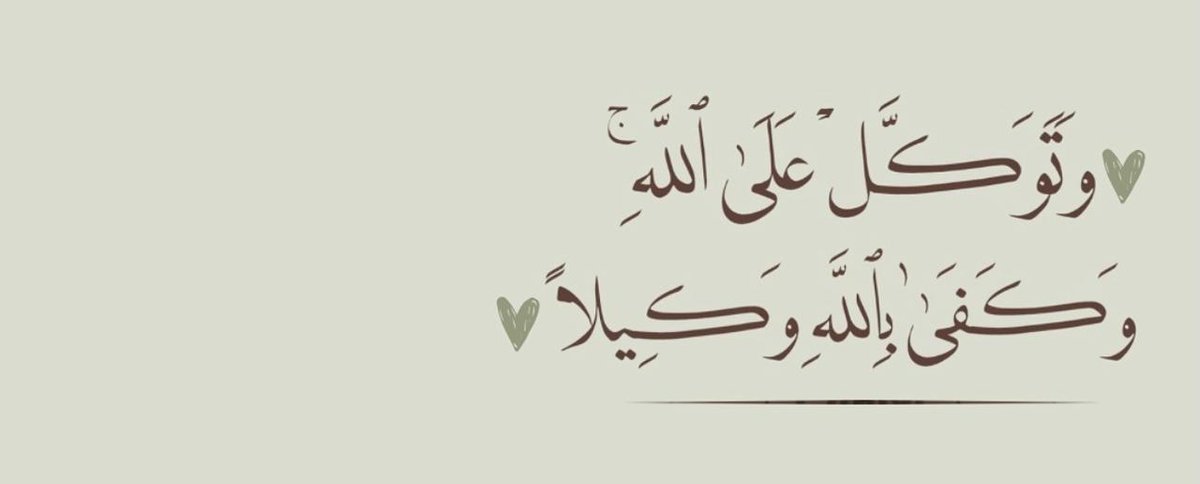 وَتَوَكَّلْ عَلَىٰ ٱللَّهِ ۚ
وَكَفَىٰ بِٱللَّهِ وَكِيلًا